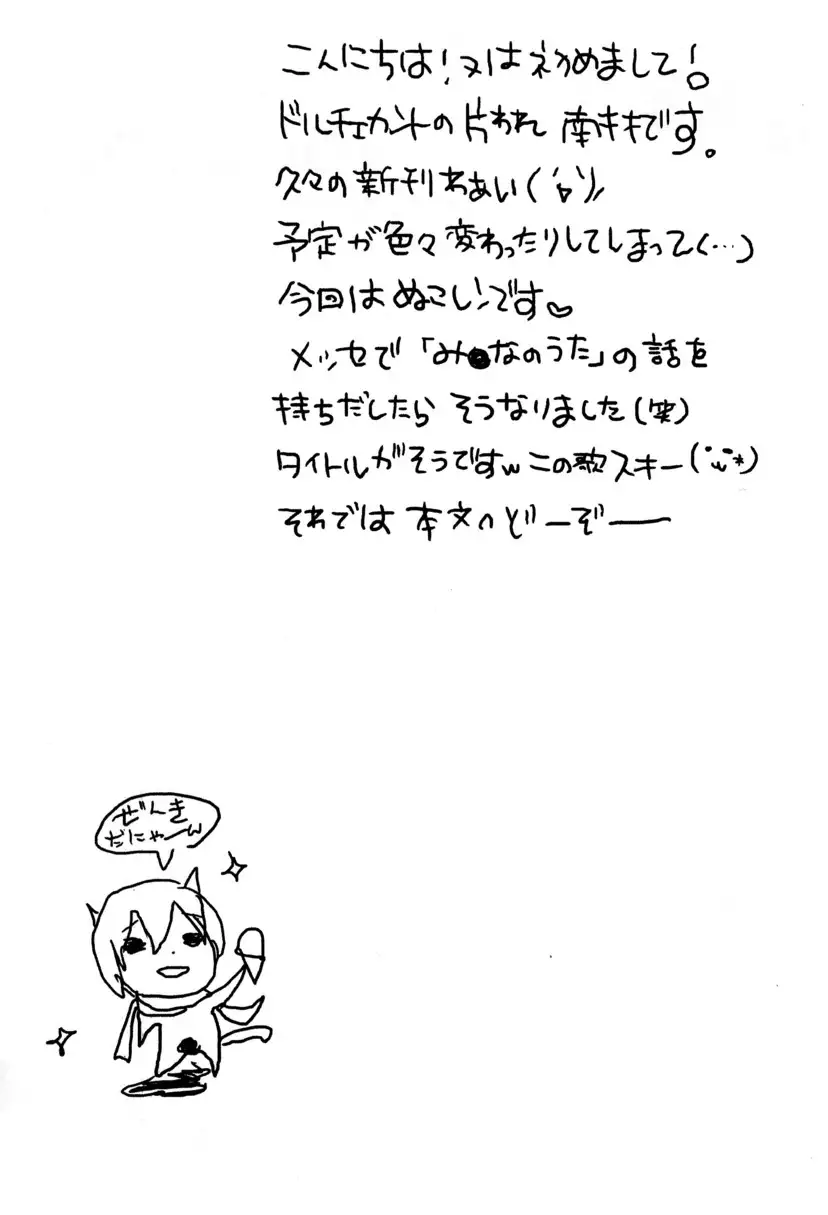 こんにちは！又は初めまして！
ドルチェカントの片われ 南キキです。
久々の新刊わあい(´ワ`)ﾉ
予定が色々変わったりしてしまって(…)
今回はぬこレンです♡
メッセで「み●なのうた」の話を
持ちだしたら そうなりました(笑)
タイトルがそうですw この歌スキー(˙w˙*)
それでは 本文へどーぞー
ぜんき
だにゃーw